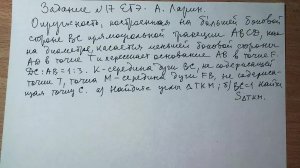 Задание №17 ЕГЭ. А. Ларин.
Окружность, построенная на большей боковой
стороне BC прямоугольной трапеции ABCD, как
на диаметре, касается меньшей боковой стороны
AD в точке T и пересекает основание AB в точке F.
DC:AB=1:3. K-середина дуги BC, не содержащей
точки T, точка M-середина дуги FB, не содержа-
щая точку C. а) Найдите углы △TKM; б) BC=1 найди
S△TKM.